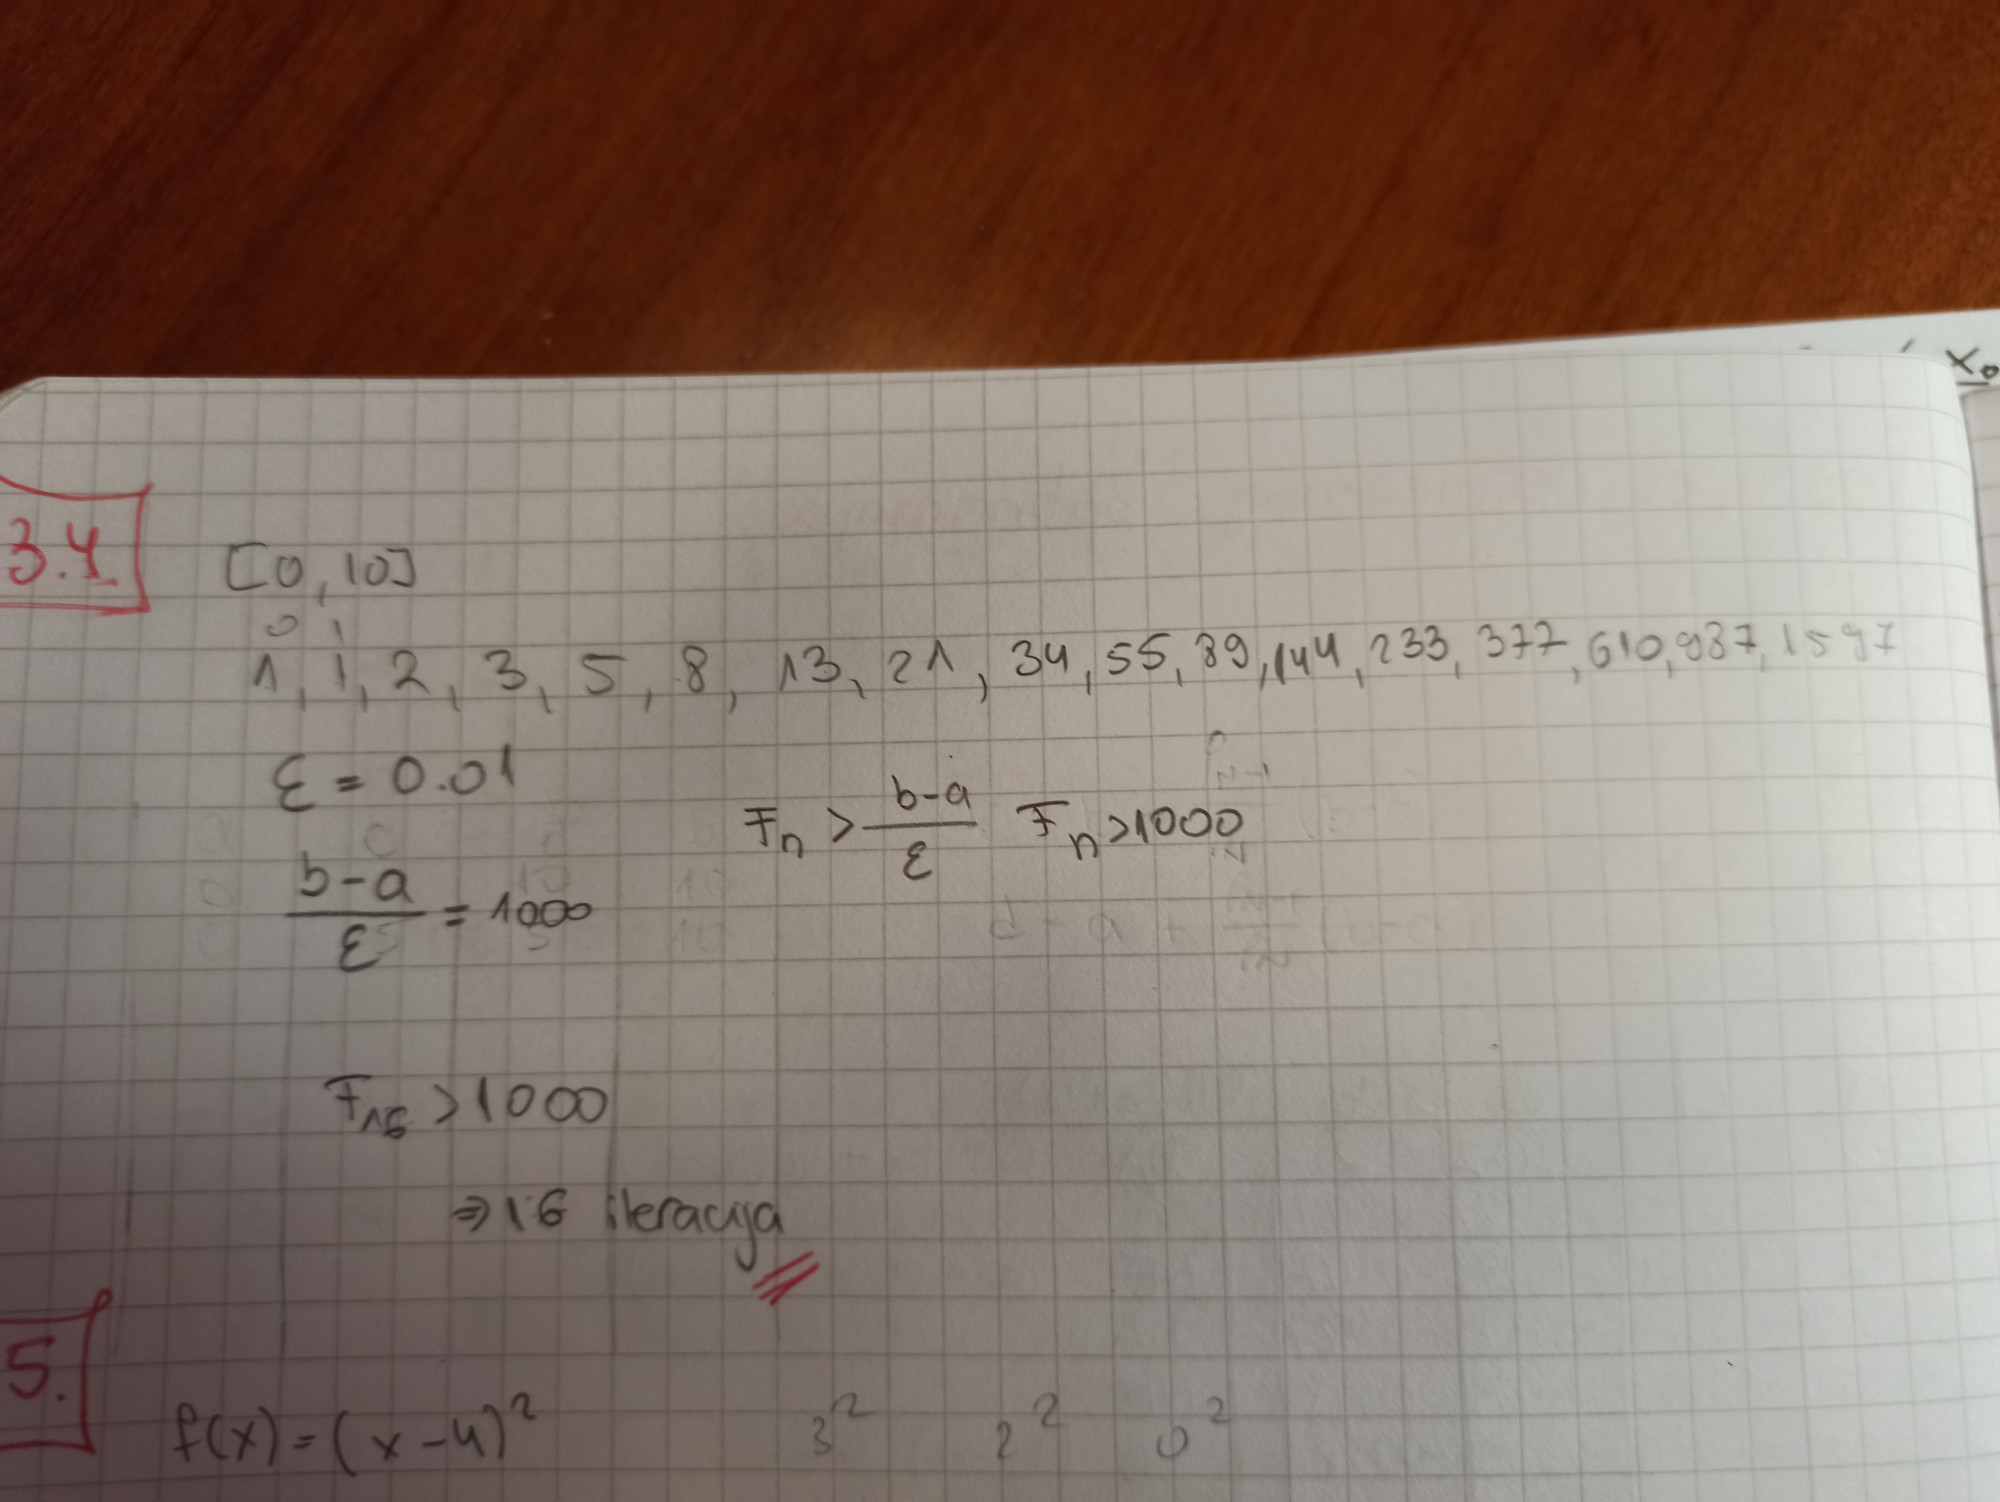 x₀
3.4.
[0, 10]
0 1
1, 1, 2, 3, 5, 8, 13, 21, 34, 55, 89, 144, 233, 377, 610, 987, 1597
ε = 0.01
Fn > (b-a)/ε Fn > 1000
(b-a)/ε = 1000
F16 > 1000
⇒ 16 iteracija
5.
f(x) = (x-4)² 3² 2² 0²